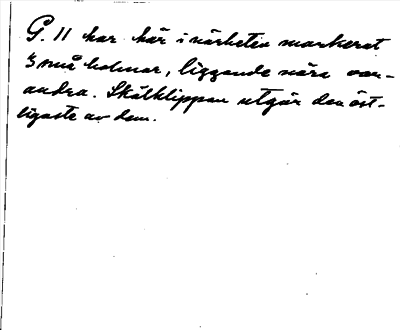 G. 11 har här i närheten markerat
3 små holmar, liggande nära var-
andra. Skålklippan utgör den öst-
ligaste av dem.